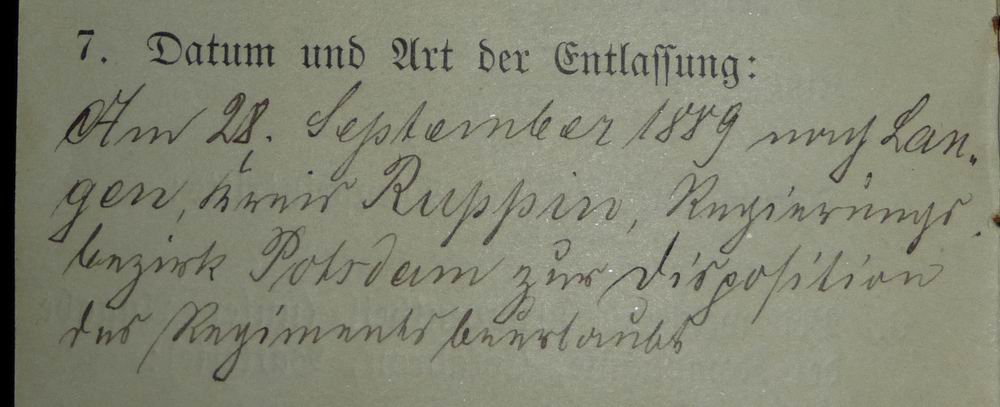 7. Datum und Art der Entlassung:
Am 28. September 1889 nach Lan-
gen, Kreis Ruppin, Regierungs-
bezirk Potsdam zur Disposition
des Regiments beurlaubt